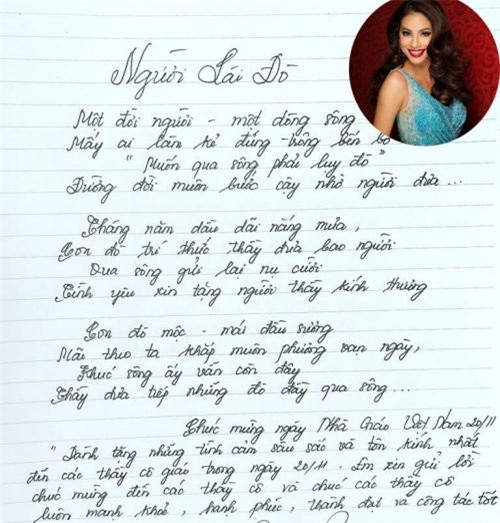 Người Lái Đò
Một đời người - một dòng sông
Mấy ai làm kẻ đứng trông bến bờ
"Muốn qua sông phải luỵ đò"
Đường đời muôn bước cậy nhờ người đưa ...
Tháng năm dầu dãi nắng mưa,
Con đò trí thức thầy đưa bao người
Qua sông gửi lại nụ cười
Tình yêu xin tặng người thầy kính thương
Con đò mộc - mái đầu sương
Mãi theo ta khắp muôn phương vạn ngày,
Khúc sông ấy vẫn còn đây
Thầy đưa tiếp những đò đầy qua sông ...
Chúc mừng ngày Nhà Giáo Việt Nam 20/11
"Dành tặng những tình cảm sâu sắc và tôn kính nhất
đến các thầy cô giáo trong ngày 20/11. Em xin gửi lời
chúc mừng đến các thầy cô và chúc các thầy cô
luôn mạnh khoẻ, hạnh phúc, thành đạt và công tác tốt